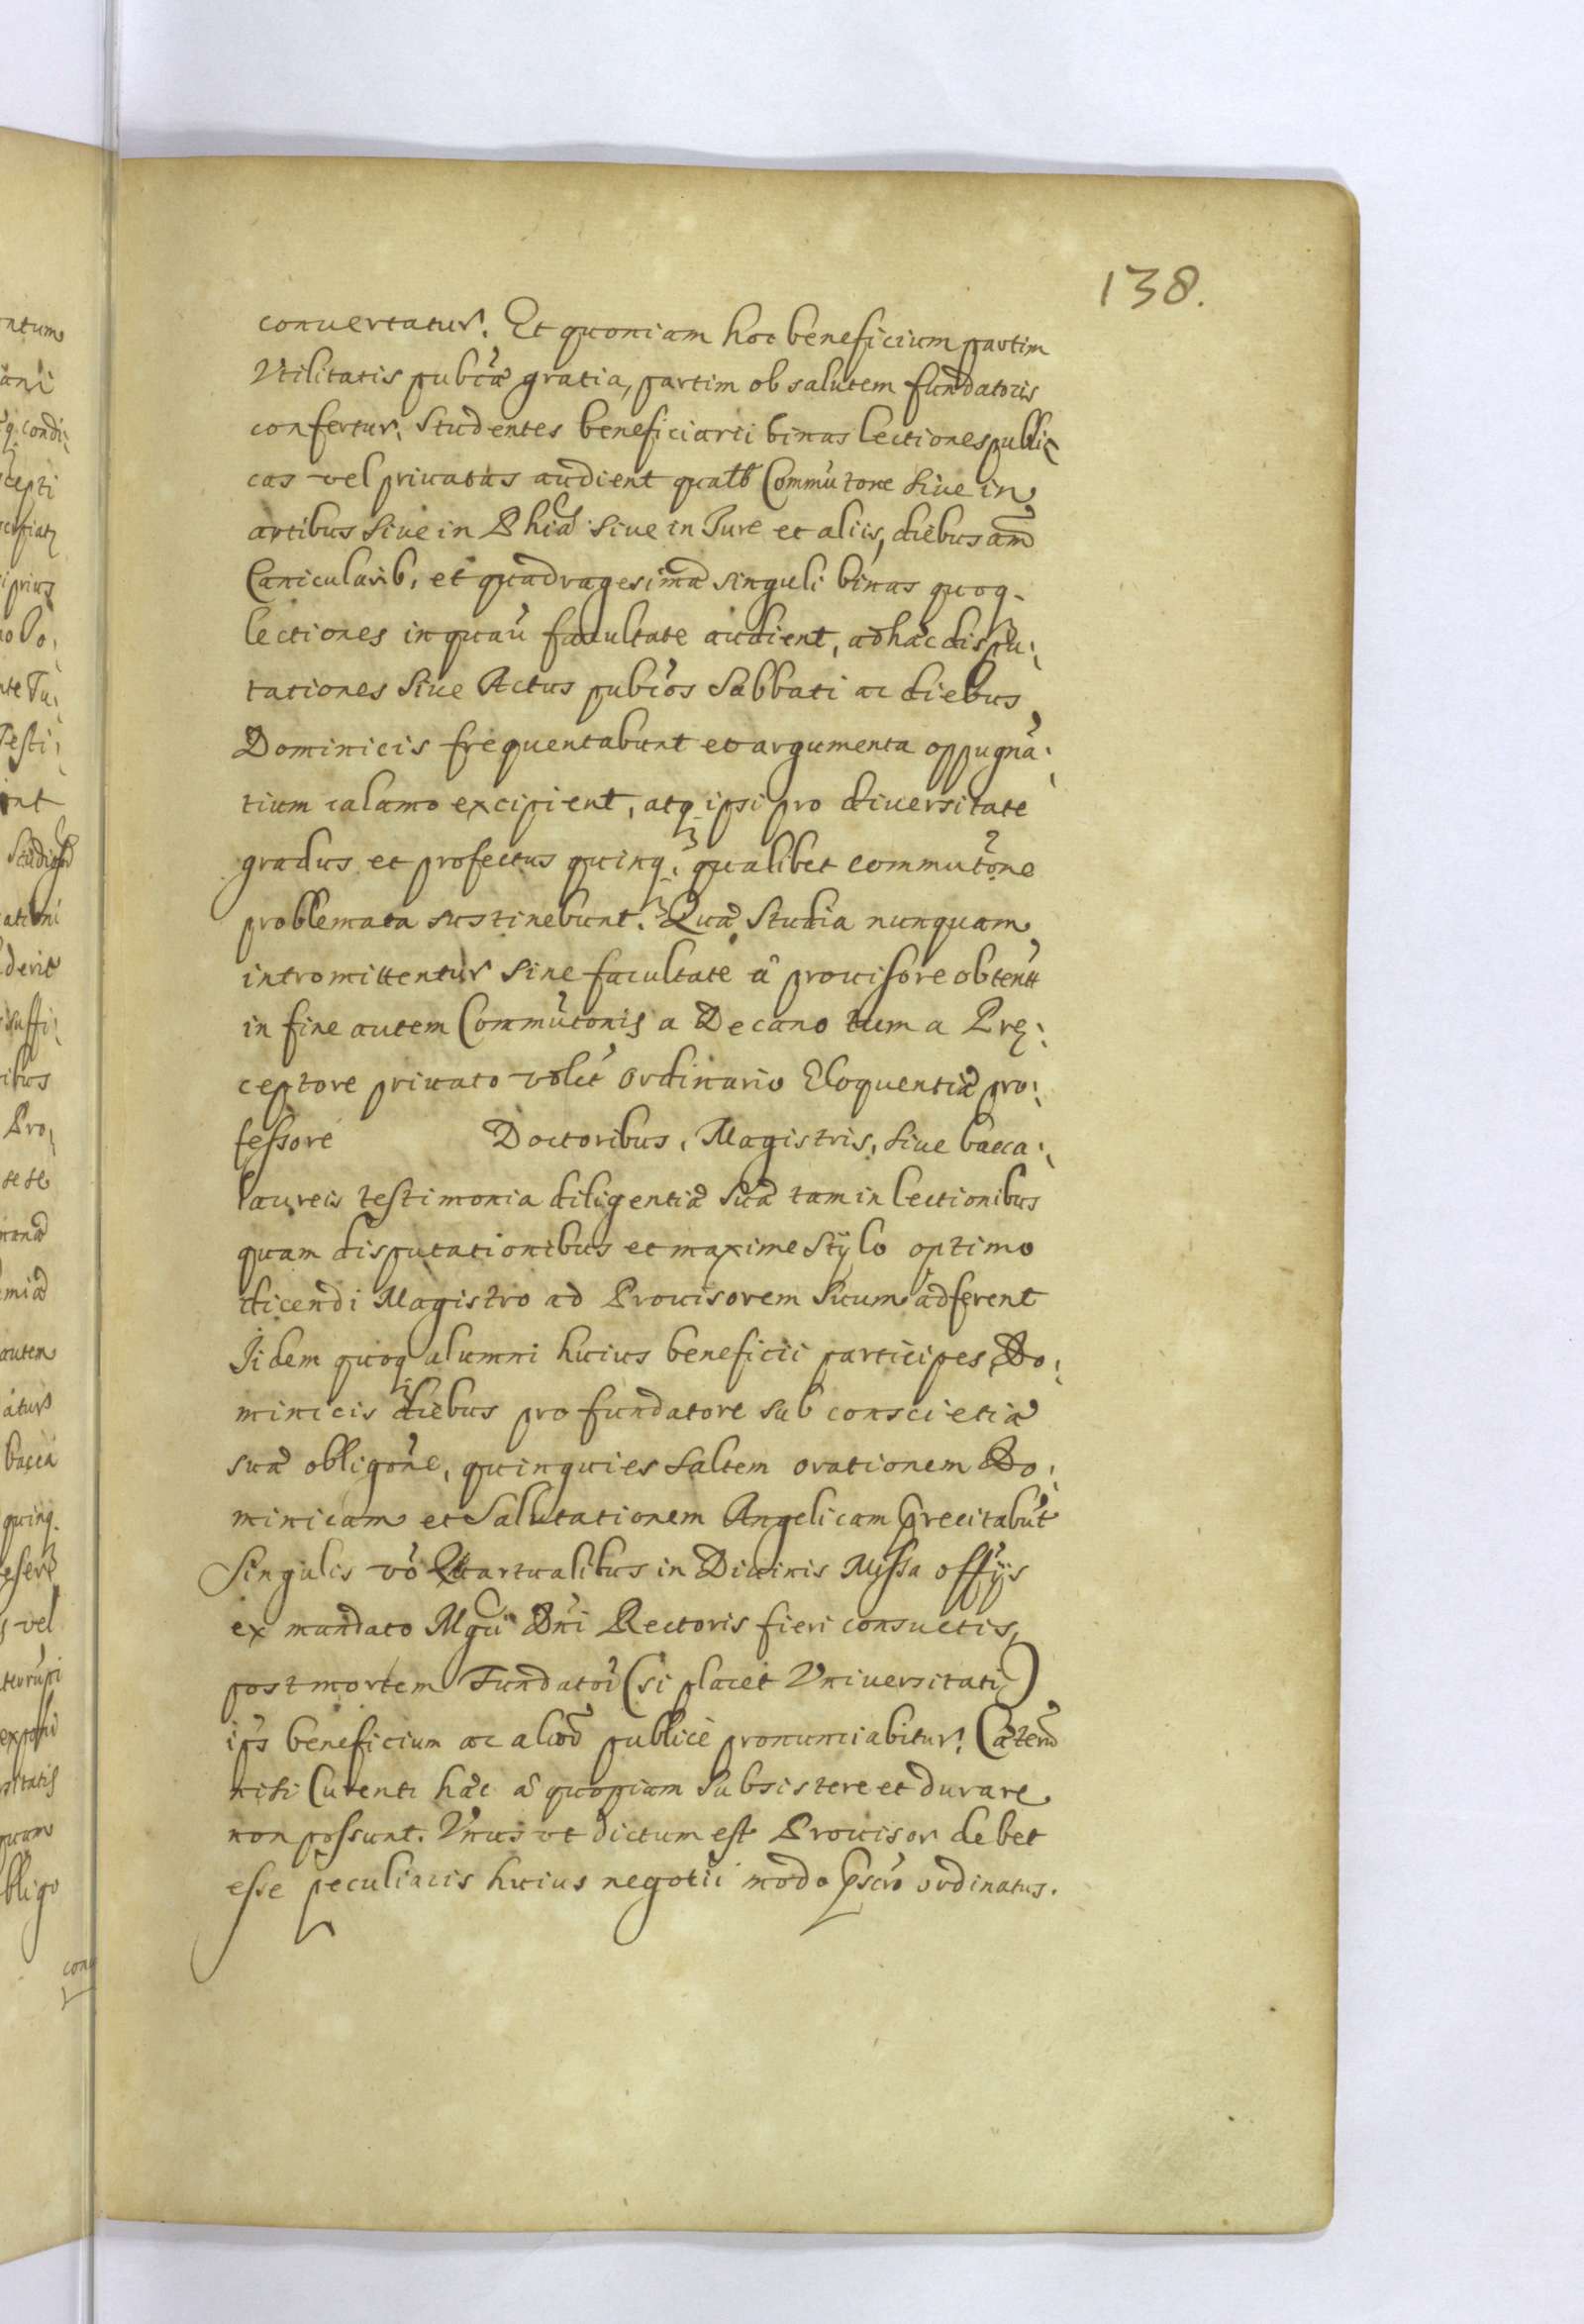 138.
conuertatur. Et quoniam hoc beneficium partim
Vtilitatis pubcæ gratia, partim ob salutem fundatoris
confertur. Studentes beneficiarii binas lectiones publi:
cas vel priuatas audient qualt Commutone siue in
artibus siue in Phiâ siue in Jure et aliis, diebus am̃
Canicularib, et quadragesimæ singuli binas quoq.
lectiones in quau facultate audient, ad hæc dispu:
tationes siue Actus pubcos Sabbati ac diebus
Dominicis frequentabunt et argumenta oppugnā:
tium calamo excipient, atq ipsi pro diuersitate
gradus et profectus quinq, qualibet commutone
problemata sustinebunt. Quæ Studia nunquam
intromittentur sine facultate a prouisore obtent
in fine autem Commutonis a Decano tum a Prę:
ceptore priuato vol et ordinario Eloquentiæ pro:
fessore Doctoribus, Magistris, siue bacca:
laureis testimonia diligentiæ suæ tam in lectionibus
quam disputationibus et maxime stylo optimo
dicendi Magistro ad Prouisorem suum adferent
Iidem quoq alumni huius beneficii participes Do:
minicis diebus pro fundatore sub conscietiæ
suæ obligone, quinquies saltem orationem Do:
minicam et Salutationem Angelicam precitabūt
Singulis vo Quartualibus in Diuinis Missæ offijs
ex mandato Mgci Dni Rectoris fieri consuetis,
post mortem Fundatoi (si placet Vniuersitati)
ips beneficium ac alioð publice pronunciabitur. Cæterū
nisi Curenti hæc a quopiam subsistere et durare
non possunt. Vnus vt dictum est Prouisor debet
esse peculiaris huius negotii modo pscro ordinatus.